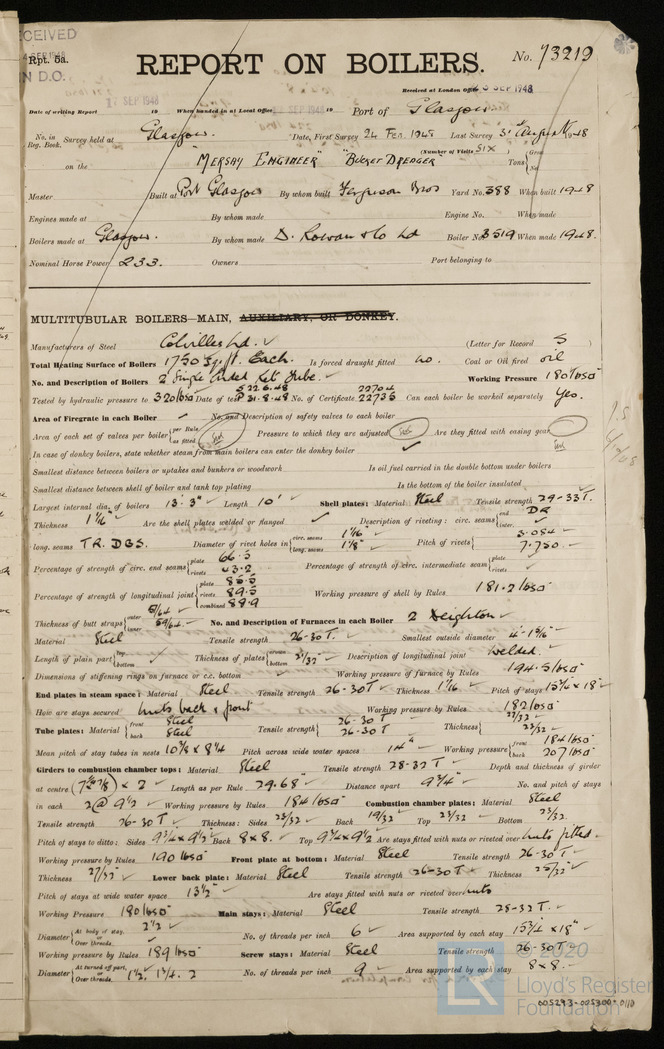 RECEIVED
SEP 1948
Rpt. 5a.
N D.O.
REPORT ON BOILERS.
No. 73219
Received at London Office 3 SEP 1948
Date of writing Report 1 SEP 1948 19 When handed in at Local Office SEP 1948 19 Port of Glasgow
No. in Reg. Book. Survey held at Glasgow. Date, First Survey 24 Feb. 1948 Last Survey 31 August 1948
on the "MERSEY ENGINEER" "BUCKET DREDGER" (Number of Visits SIX) Tons { Gross Net
Master Built at Port Glasgow By whom built Ferguson Bros Yard No. 388 When built 1948
Engines made at By whom made Engine No. When made
Boilers made at Glasgow. By whom made D. Rowan & Co Ld Boiler No. 3519 When made 1948.
Nominal Horse Power 233. Owners Port belonging to
MULTITUBULAR BOILERS—MAIN, AUXILIARY, OR DONKEY.
Manufacturers of Steel Colvilles Ld. ✓ (Letter for Record S )
Total Heating Surface of Boilers 1750 sq. ft. Each. Is forced draught fitted no. Coal or Oil fired oil
No. and Description of Boilers 2 Single Ended Ret. Tube. Working Pressure 180 lbs
Tested by hydraulic pressure to 320 lbs Date of test S 22.6.48 P 31.8.48 No. of Certificate 22704 22736 Can each boiler be worked separately Yes.
Area of Firegrate in each Boiler ✓ No. and Description of safety valves to each boiler
Area of each set of valves per boiler { per Rule as fitted Pressure to which they are adjusted Are they fitted with easing gear
In case of donkey boilers, state whether steam from main boilers can enter the donkey boiler ✓
Smallest distance between boilers or uptakes and bunkers or woodwork Is oil fuel carried in the double bottom under boilers
Smallest distance between shell of boiler and tank top plating Is the bottom of the boiler insulated
Largest internal dia. of boilers 13' 3" ✓ Length 10' ✓ Shell plates: Material Steel Tensile strength 29-33 T.
Thickness 1 1/16" ✓ Are the shell plates welded or flanged ✓ Description of riveting: circ. seams { end DR inter. ✓
long. seams TR. DBS. Diameter of rivet holes in { circ. seams 1 1/16 long. seams 1 1/8" ✓ Pitch of rivets { 3.084 7.750 ✓
Percentage of strength of circ. end seams { plate 66.5 rivets 43.2 Percentage of strength of circ. intermediate seam { plate rivets ✓
Percentage of strength of longitudinal joint { plate 85.5 rivets 89.5 combined 88.9 Working pressure of shell by Rules 181.2 lbs
Thickness of butt straps { outer inner No. and Description of Furnaces in each Boiler 2 Deighton ✓
Material Steel Tensile strength 26-30 T. ✓ Smallest outside diameter
Length of plain part { top bottom ✓ Thickness of plates { crown bottom 21/32 ✓ Description of longitudinal joint welded. ✓
Dimensions of stiffening rings on furnace or c.c. bottom ✓ Working pressure of furnace by Rules 194.5 lbs
End plates in steam space: Material Steel Tensile strength 26-30 T ✓ Thickness 1 1/16 ✓ Pitch of stays 15 3/4 x 18 ✓
How are stays secured nuts back & front Working pressure by Rules 182 lbs
Tube plates: Material { front Steel back Steel Tensile strength { 26-30 T 26-30 T Thickness {
Mean pitch of stay tubes in nests Pitch across wide water spaces 14" ✓ Working pressure { front 184 lbs back 207 lbs
Girders to combustion chamber tops: Material Steel Tensile strength 28-32 T. Depth and thickness of girder
at centre x 2 ✓ Length as per Rule 29.68" ✓ Distance apart 9 3/4" ✓ No. and pitch of stays
in each 2 @ 9 1/2 ✓ Working pressure by Rules 184 lbs Combustion chamber plates: Material Steel
Tensile strength 26-30 T ✓ Thickness: Sides 23/32 ✓ Back 19/32 ✓ Top 23/32 ✓ Bottom 23/32
Pitch of stays to ditto: Sides 9 3/4 x 9 1/2 Back 8 x 8. ✓ Top 9 3/4 x 9 1/2 Are stays fitted with nuts or riveted over nuts fitted.
Working pressure by Rules 190 lbs Front plate at bottom: Material Steel Tensile strength 26-30 T ✓
Thickness 27/32 ✓ Lower back plate: Material Steel Tensile strength 26-30 T ✓ Thickness
Pitch of stays at wide water space 13 1/2 ✓ Are stays fitted with nuts or riveted over nuts
Working Pressure 180 lbs Main stays: Material Steel Tensile strength 28-32 T. ✓
Diameter { At body of stay, 2 1/2 ✓ or Over threads. ✓ No. of threads per inch 6 ✓ Area supported by each stay 15 3/4 x 18" ✓
Working pressure by Rules 189 lbs Screw stays: Material Steel Tensile strength 26-30 T. ✓
Diameter { At turned off part, or Over threads. 1 1/2, 1 3/4. 2 No. of threads per inch 9 ✓ Area supported by each stay 8 x 8. ✓
© 2020
LR
Lloyd's Register
Foundation
005293-005300-0110